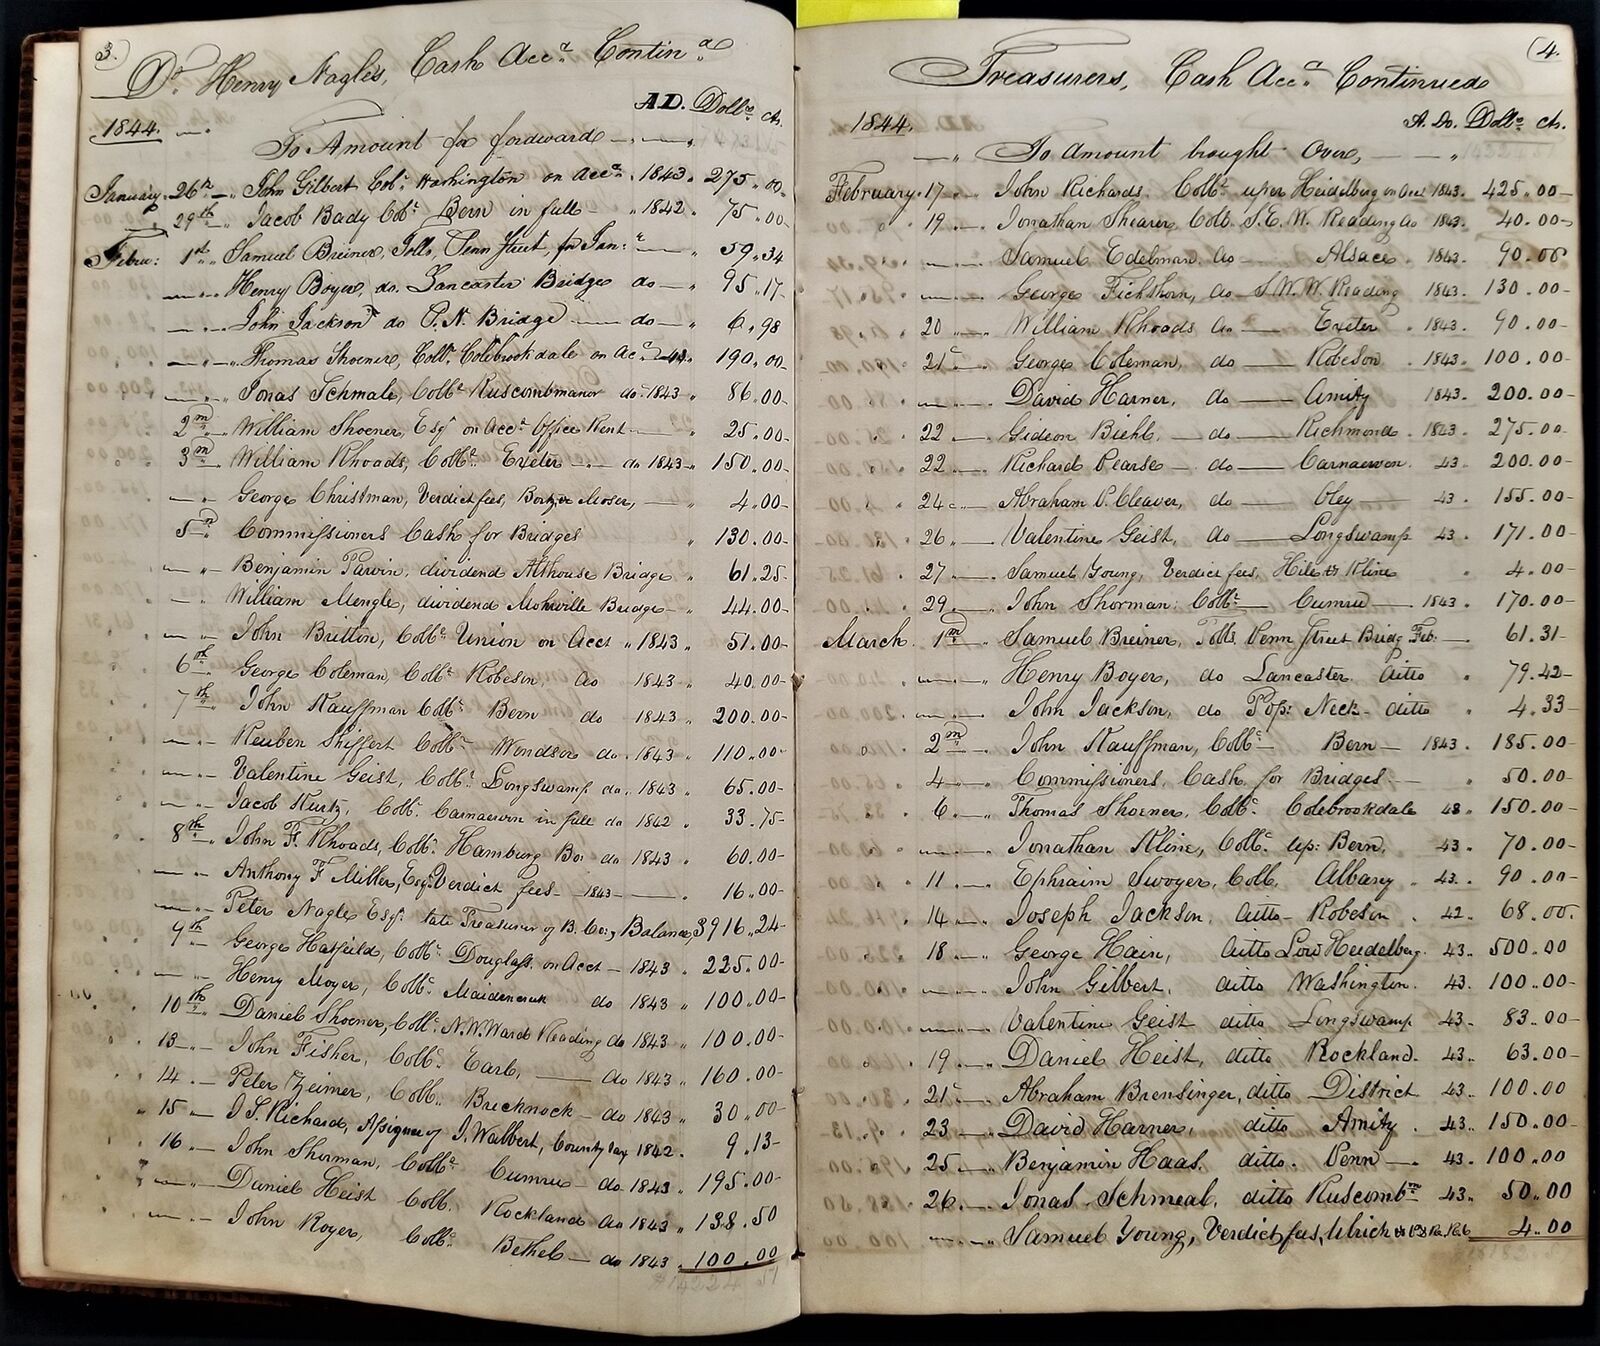 3.
Dr. Henry Nagle's, Cash Acct. Contind.
A.D. Dolls. cts.
1844.
To Amount for fordward
January 26th John Gilbert Collr. Washington on Acct. 1843 275.00
29th Jacob Bady Collr. Bern in full 1842 75.00
Febru: 1st Samuel Breiner, Tolls, Penn Street, for Jan: 59.34
Henry Boyer, do. Lancaster Bridge do 95.17
John Jackson do P.N. Bridge do 6.98
Thomas Shoener, Collr. Colebrookdale on Acct. 43 190.00
Jonas Schmale, Collr. Ruscombmanor do 1843 86.00
2nd William Shoener, Esqr. on Acct. Office Rent 25.00
3rd William Rhoads, Collr. Exeter do 1843 150.00
George Christman, Verdict fees, Moser, 4.00
5th Commissioners Cash for Bridges 130.00
Benjamin Parvin, dividend Althouse Bridge 61.25
William Mengle, dividend Mohrville Bridge 44.00
John Britton, Collr. Union on Acct 1843 51.00
6th George Coleman, Collr. Robeson, do 1843 40.00
7th John Kauffman Collr. Bern do 1843 200.00
Reuben Shiffert Collr. Windsor do 1843 110.00
Valentine Geist, Collr. Longswamp do 1843 65.00
Jacob Kurtz, Collr. Carnaervon in full do 1842 33.75
8th John F. Rhoads, Collr. Hamburg Bo: do 1843 60.00
Anthony F Miller, Esqr. Verdict fees 1843 16.00
Peter Nagle Esqr. late Treasurer of B. Co:, Balance, 3916.24
9th George Hatfield, Collr. Douglass, on Acct 1843 225.00
Henry Moyer, Collr. Maidencreek do 1843 100.00
10th Daniel Shoener, Collr. N.W. Ward Reading do 1843 100.00
13 John Fisher, Collr. Earl, do 1843 160.00
14 Peter Zeimer, Collr. Brecknock do 1843 30.00
15 J. S. Richards, Assignee of J. Walbert, County tax 1842. 9.13
16 John Shorman, Collr. Cumru do 1843 195.00
Daniel Heist Collr. Rockland do 1843 138.50
John Royer, Collr. Bethel do 1843 100.00
4.
Treasurers, Cash Acct. Continued
1844. A. Do. Dolls. cts.
To amount brought Over,
February 17 John Richards, Collr. uper Heidelberg on Acct 1843. 425.00
19 Jonathan Shearer, Collr. S.E.W. Reading do 1843. 40.00
Samuel Edelman do Alsace 1843. 90.00
George Fichthorn, do S.W.W. Reading 1843. 130.00
20 William Rhoads do Exeter 1843. 90.00
21 George Coleman, do Robeson 1843. 100.00
David Harner, do Amity 1843. 200.00
22 Gideon Biehl, do Richmond 1843. 275.00
22 Richard Pearse do Carnaervon 43 200.00
24 Abraham P. Cleaver, do Oley 43 155.00
26 Valentine Geist, do Longswamp 43 171.00
27 Samuel Young, Verdict fees, Kline 4.00
29 John Shorman: Collr. Cumru 1843 170.00
March. 1st Samuel Breiner, Tolls, Penn Street Bridg Feb: 61.31
Henry Boyer, do Lancaster ditto 79.42
John Jackson, do Poss: Neck ditto 4.33
2nd John Kauffman, Collr. Bern 1843 185.00
4 Commissioners, Cash for Bridges 50.00
6 Thomas Shoener, Collr. Colebrookdale 43 150.00
Jonathan Kline, Collr. up: Bern, 43 70.00
11 Ephraim Swoyer, Collr. Albany 43 90.00
14 Joseph Jackson, ditto Robeson 42 68.00
18 George Hain, ditto Low Heidelberg 43 500.00
John Gilbert, ditto Washington 43 100.00
Valentine Geist ditto Longswamp 43 83.00
19 Daniel Heist, ditto Rockland 43 63.00
21 Abraham Brensinger, ditto District 43 100.00
23 David Harner, ditto Amity 43 150.00
25 Benjamin Haas, ditto Penn 43 100.00
26 Jonas Schmeal, ditto Ruscombmr 43 50.00
Samuel Young, Verdict fees, Ulrich 4.00